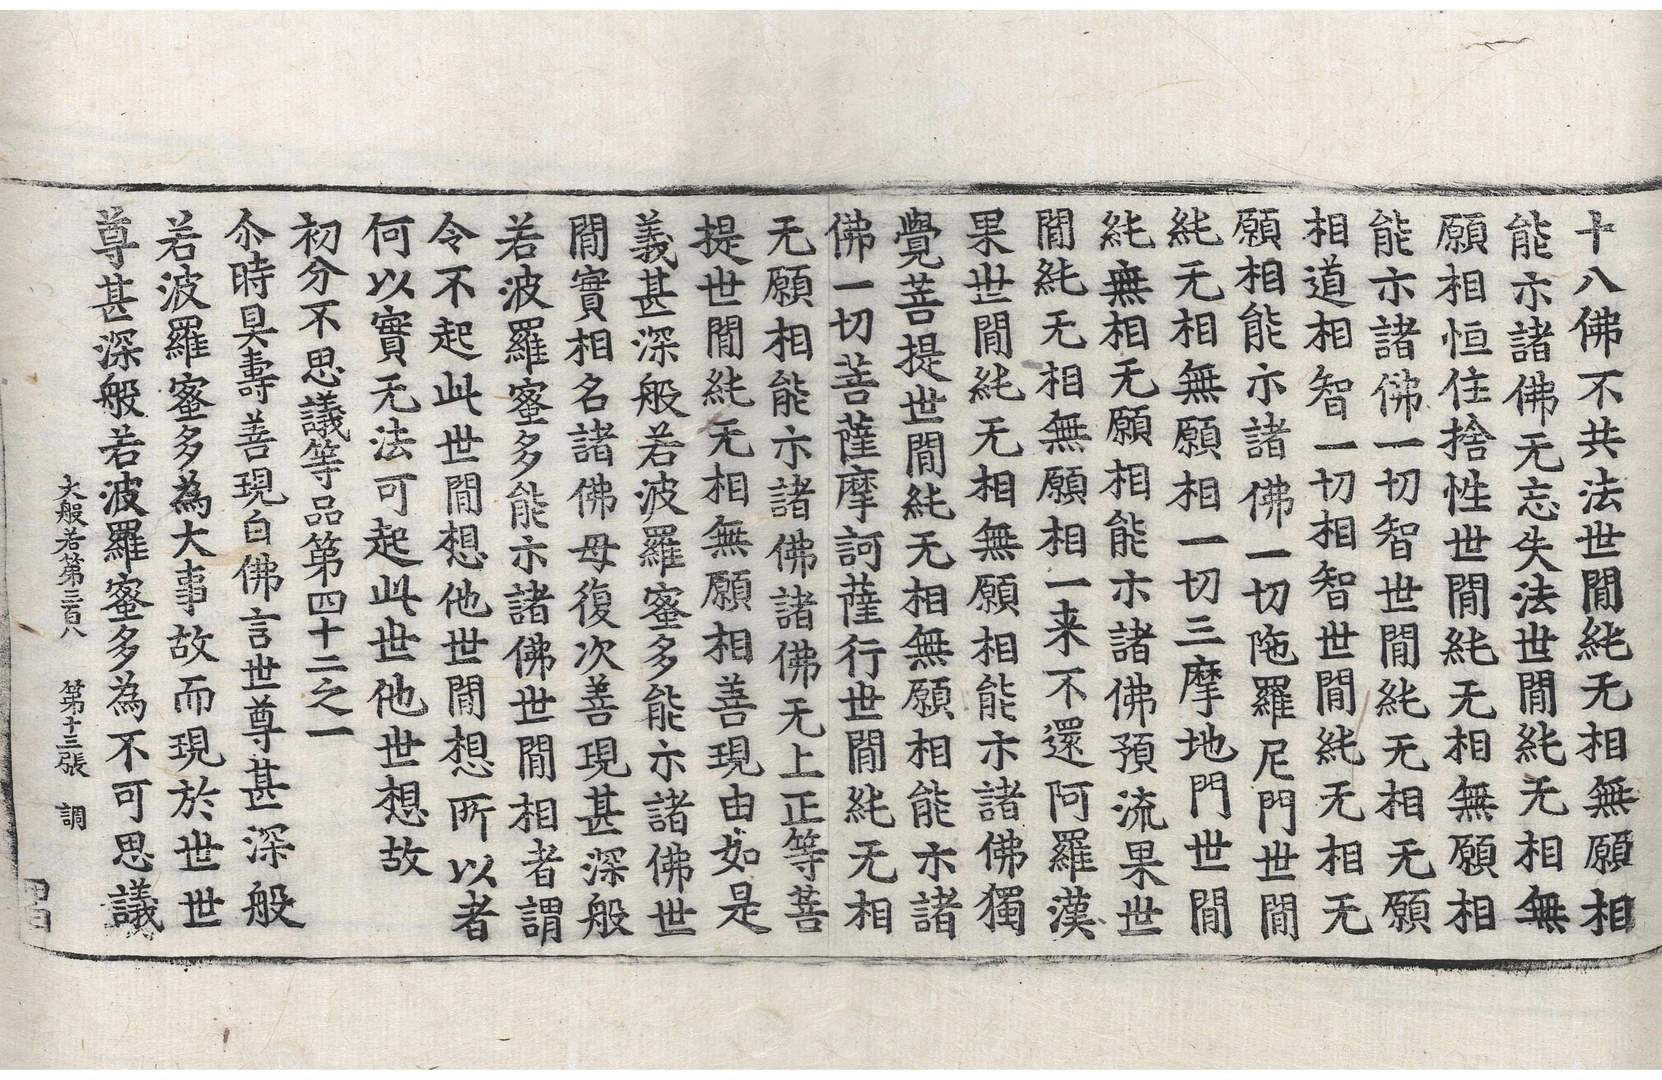 十八佛不共法世閒純无相無願相
能示諸佛无忘失法世閒純无相無
願相恒住捨性世閒純无相無願相
能示諸佛一切智世閒純无相无願
相道相智一切相智世閒純无相无
願相能示諸佛一切陁羅尼門世閒
純无相無願相一切三摩地門世閒
純無相无願相能示諸佛預流果世
閒純无相無願相一来不還阿羅漢
果世閒純无相無願相能示諸佛獨
覺菩提世閒純无相無願相能示諸
佛一切菩薩摩訶薩行世閒純无相
无願相能示諸佛諸佛无上正等菩
提世閒純无相無願相善現由如是
義甚深般若波羅蜜多能示諸佛世
閒實相名諸佛母復次善現甚深般
若波羅蜜多能示諸佛世閒相者謂
令不起此世閒想他世閒想所以者
何以實无法可起此世他世想故
初分不思議等品第四十二之一
尒時具壽善現白佛言世尊甚深般
若波羅蜜多為大事故而現於世世
尊甚深般若波羅蜜多為不可思議
大般若第三百八 第十三張 調